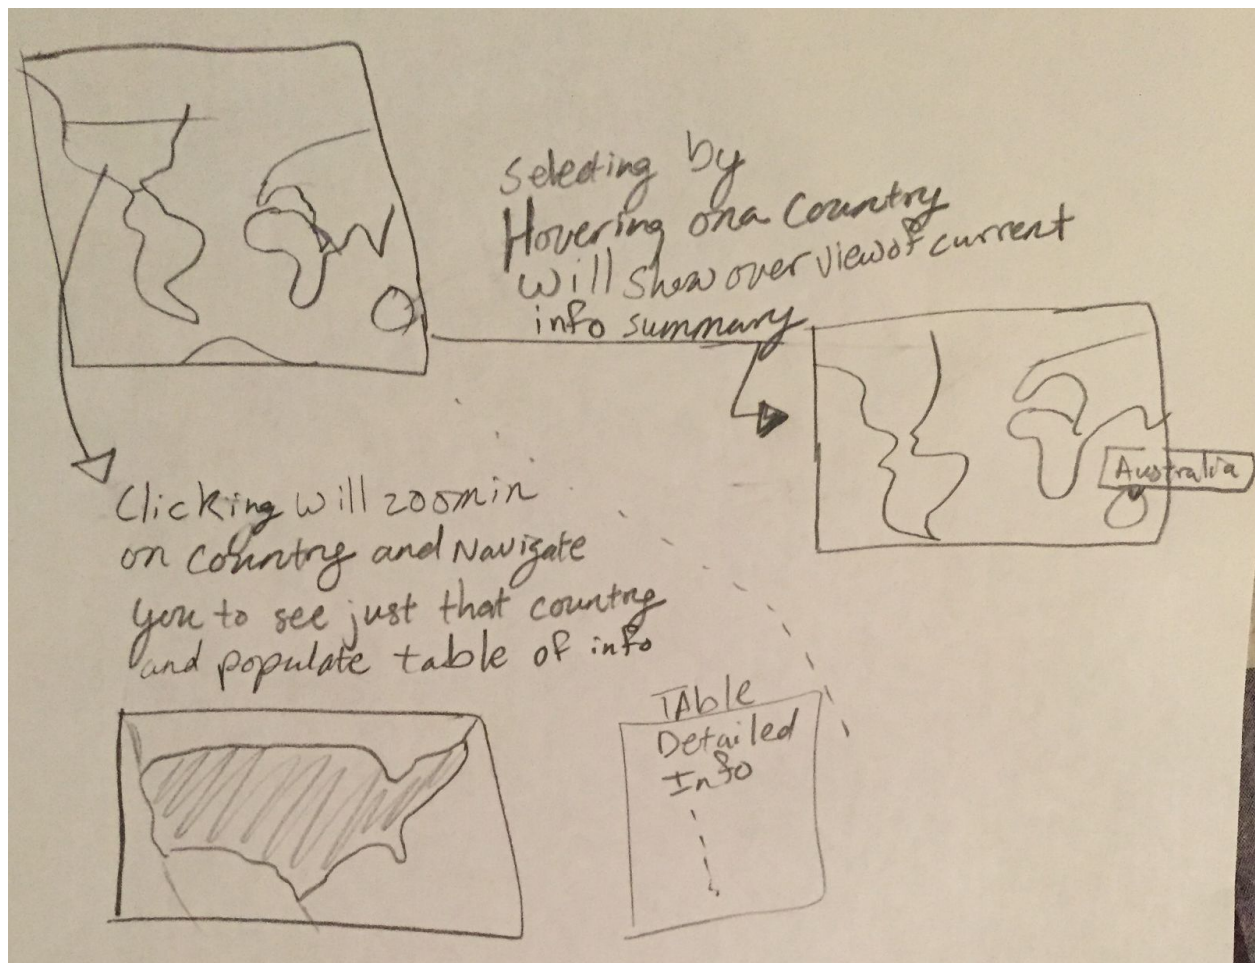 Selecting by
Hovering on a Country
will show over view of current
info summary
Australia
Clicking will zoom in
on country and Navigate
you to see just that country
and populate table of info
TAble
Detailed
Info